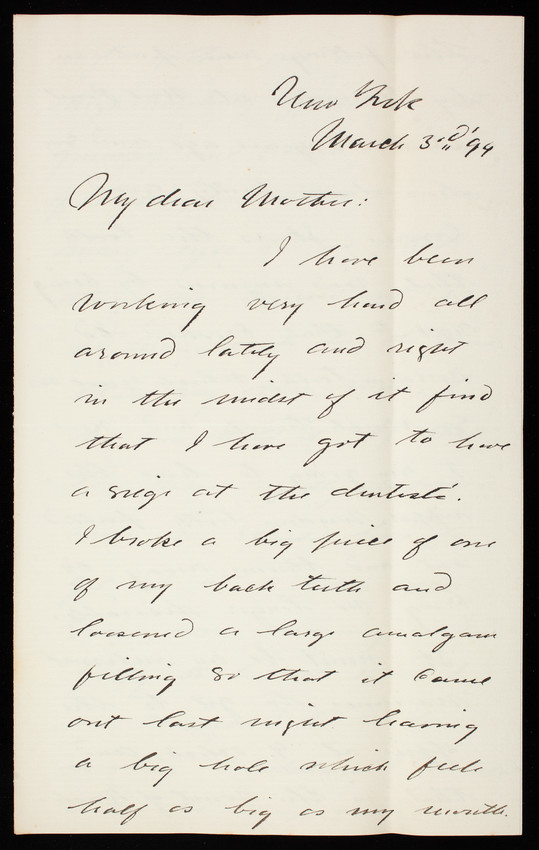 New York
March 3rd 94
My dear Mother:
I have been
working very hard all
around lately and right
in the midst of it find
that I have got to have
a siege at the dentists'.
I broke a big piece of one
of my back teeth and
loosened a large amalgam
filling so that it came
out last night leaving
a big hole which feels
half as big as my mouth.